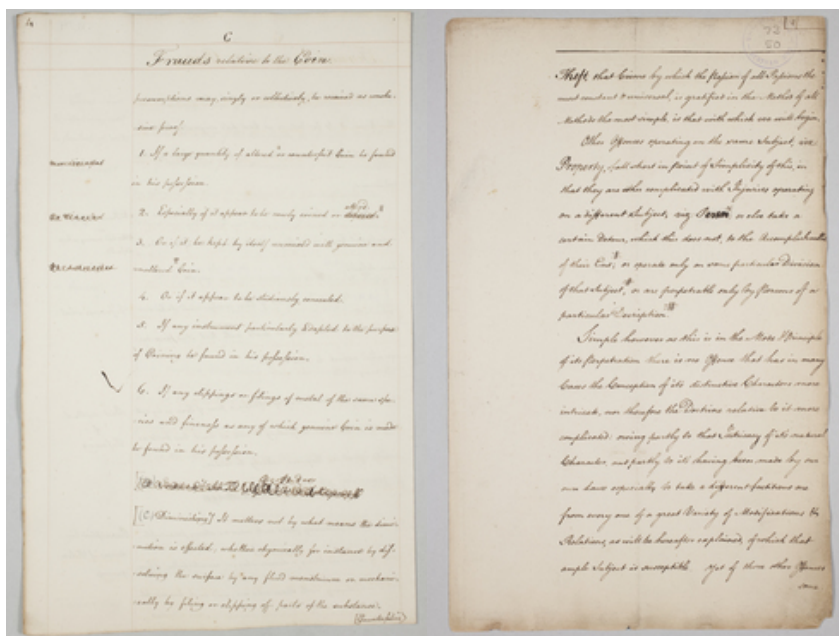 C
Frauds relative to the Coin.
presumptions may, singly or collectively, be received as conclu-
sive proof.
1. If a large quantity of altered or counterfeit Coin be found
in his possession.
2. Especially if it appear to be newly coined or
3. Or if it be kept by itself unmixed with genuine and
unaltered Coin.
4. Or if it appear to be studiously concealed.
5. If any instrument particularly adapted to the purpose
of Coining be found in his possession.
6. If any clippings or filings of metal of the same spe-
cies and fineness as any of which genuine Coin is made
be found in his possession.
[(C) Diminishing] It matters not by what means the dimi-
nution is effected; whether chymically for instance by dis-
solving the surface by any fluid menstruum or mechani-
cally by filing or clipping off parts of the substance.
72
50
Theft that Crime by which the Passion of all Passions the
most constant & universal, is gratified in the Method of all
Methods the most simple, is that with which we will begin.
Other Offences operating on the same Subject, viz
Property, fall short in Point of Simplicity of this, in
that they are complicated with Injuries operating
on a different Subject, viz Person or else take a
certain Detour, which this does not, to the Accomplishment
of their End, or operate only on some particular Division
of that Subject, or are perpetrable only by Persons of a
particular Description.
Simple however as this is in the Mode & Principle
of its Perpetration there is no Offence that has in many
Cases the Conception of its distinctive Characters more
intricate, nor therefore the Doctrine relative to it more
complicated: owing partly to that Intricacy of its natural
Character, and partly to its having been made by our
own Laws especially to take a different factitious one
from every one of a great Variety of Modifications &
Relations, as will be hereafter explained, of which that
ample Subject is susceptible. Yet of those other Offences
some